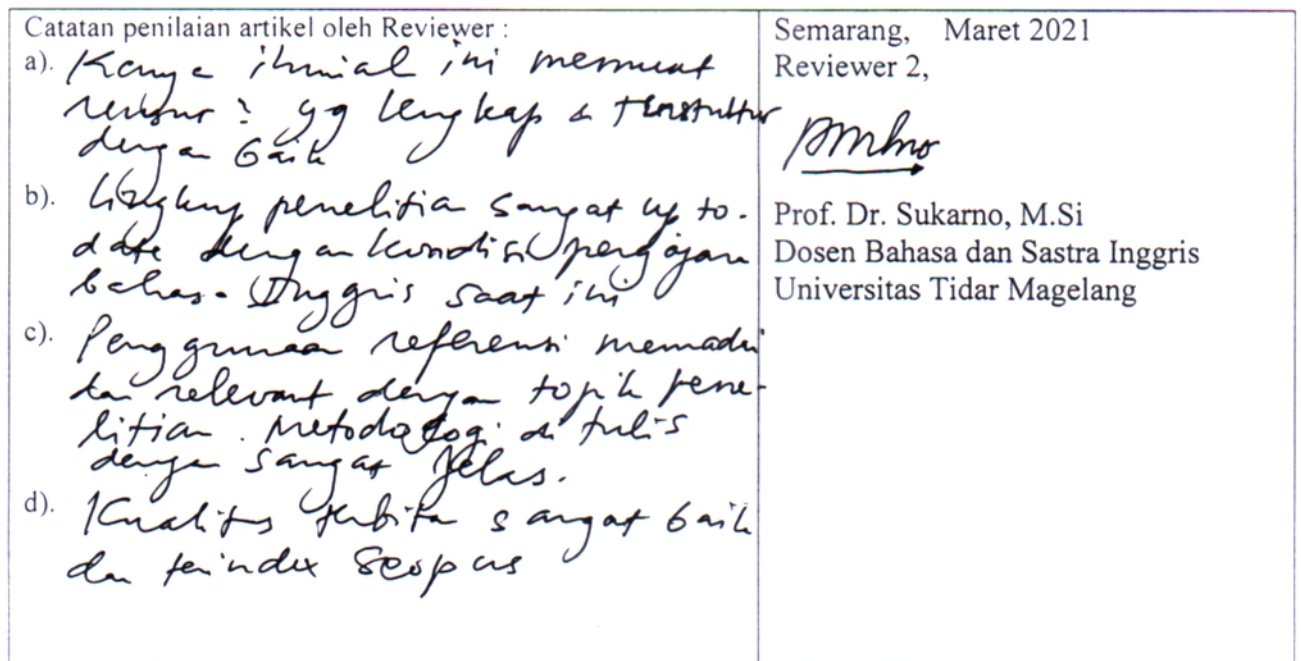 Catatan penilaian artikel oleh Reviewer :
a). Karya ilmial ini memuat
unsur 2 yg lengkap & terstuktur
dengan baik
b). Lingkup penelitian sangat up to-
date dengan kondisi pengajaran
bahasa Inggris saat ini
c). Penggunaan referensi memadai
dan relevant dengan topik pene-
litian. Metodologi di tulis
dengan sangat jelas.
d). Kualitas terbitan sangat baik
dan terindex Scopus
Semarang, Maret 2021
Reviewer 2,
Prof. Dr. Sukarno, M.Si
Dosen Bahasa dan Sastra Inggris
Universitas Tidar Magelang